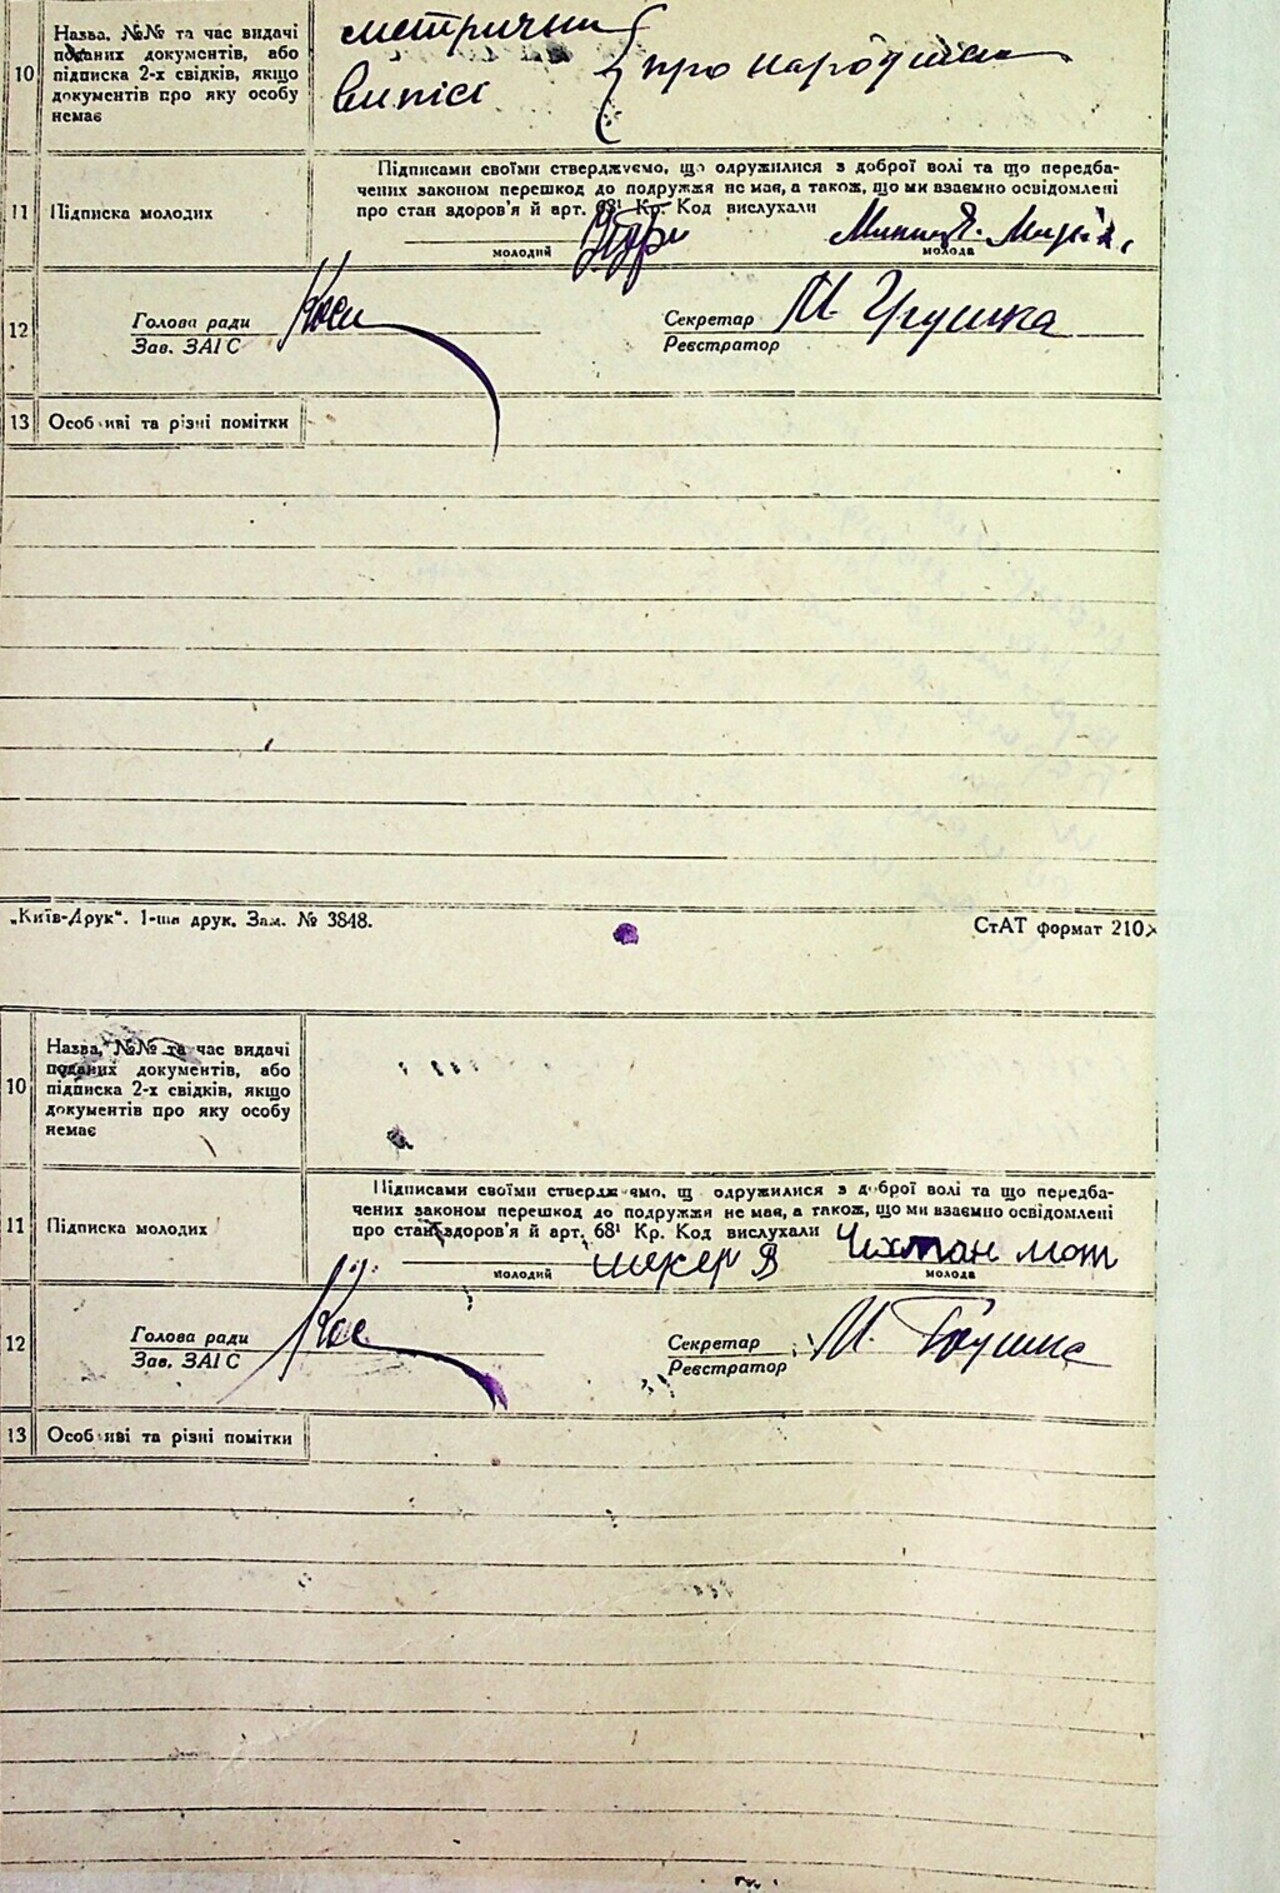 10
Назва, №№ та час видачі
поданих документів, або
підписка 2-х свідків, якщо
документів про яку особу
немає
метричний
виписі
про народження
11
Підписка молодих
Підписами своїми стверджуємо, що одружилися з доброї волі та що передба-
чених законом перешкод до подружжя не має, а також, що ми взаємно освідомлені
про стан здоров'я й арт. 68¹ Кр. Код вислухали
молодий
молода
12
Голова ради
Зав. ЗАГС
Секретар М. Грушка
Реєстратор
13 Особливі та різні помітки
„Київ-Друк“. 1-ша друк. Зам. № 3848.
СтАТ формат 210×
10
Назва, №№ та час видачі
поданих документів, або
підписка 2-х свідків, якщо
документів про яку особу
немає
11
Підписка молодих
Підписами своїми стверджуємо, що одружилися з доброї волі та що передба-
чених законом перешкод до подружжя не має, а також, що ми взаємно освідомлені
про стан здоров'я й арт. 68¹ Кр. Код вислухали
шекер В
Чихман мот
молодий
молода
12
Голова ради
Зав. ЗАГС
Секретар М. Грушка
Реєстратор
13 Особливі та різні помітки